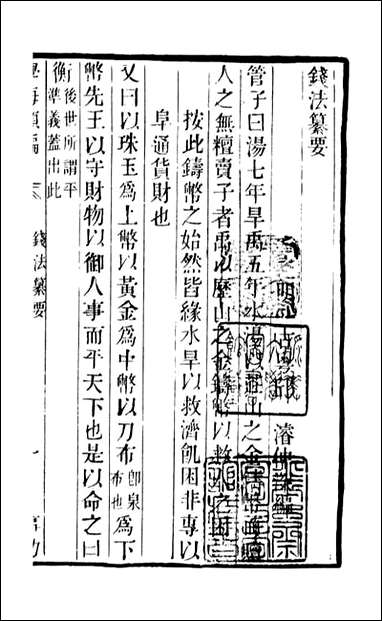 錢法纂要
濬仲
管子曰湯七年旱禹五年水湯以莊山之金鑄幣
人之無𥼷賣子者禹以歷山之金鑄幣以救人之困
按此鑄幣之始然皆緣水旱以救濟飢困非專以
阜通貨財也
又曰以珠玉為上幣以黃金為中幣以刀布即泉布也為下
幣先王以守財物以御人事而平天下也是以命之曰
衡後世所謂平準義蓋出此
學海類編
錢法纂要
一